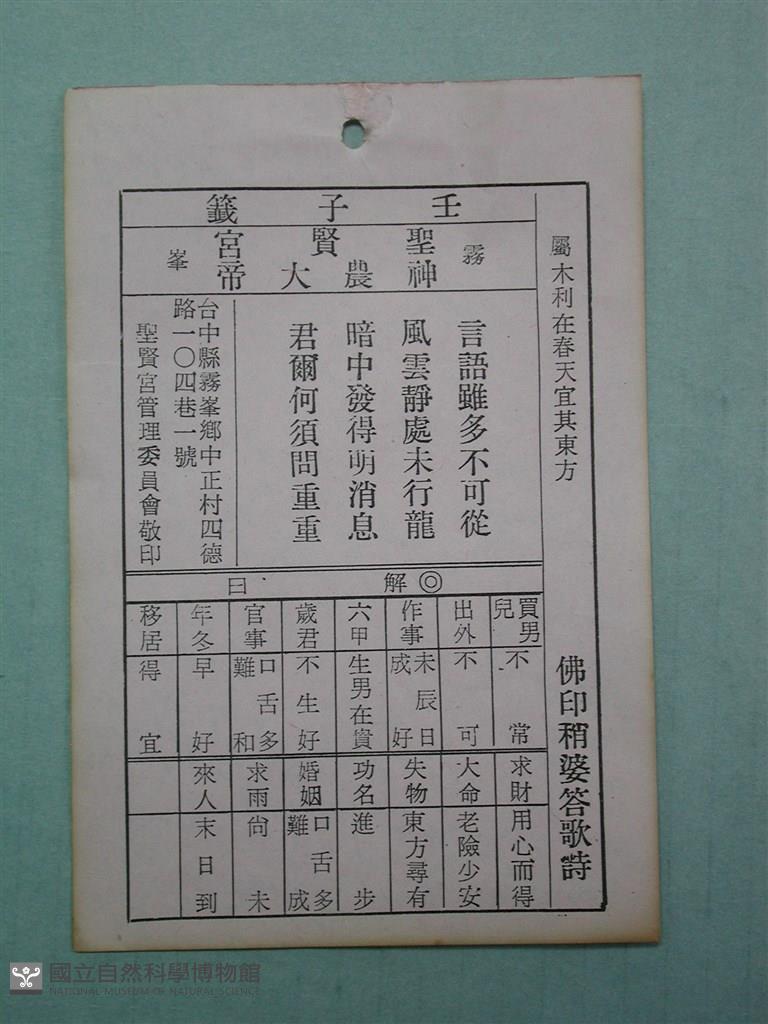 屬木利在春天宜其東方
佛印稍婆答歌詩
壬子籤
霧峯
聖賢宮
神農大帝
言語雖多不可從
風雲靜處未行龍
暗中發得明消息
君爾何須問重重
台中縣霧峯鄉中正村四德
路一〇四巷一號
聖賢宮管理委員會敬印
◎解曰
買男兒 不常
出外 不可
作事 未辰日成好
六甲 生男在貴
歲君 不生好
官事 口舌多難和
年冬 早好
移居 得宜
求財 用心而得
大命 老險少安
失物 東方尋有
功名 進步
婚姻 口舌多難成
求雨 尚未
來人 末日到
國立自然科學博物館
NATIONAL MUSEUM OF NATURAL SCIENCE